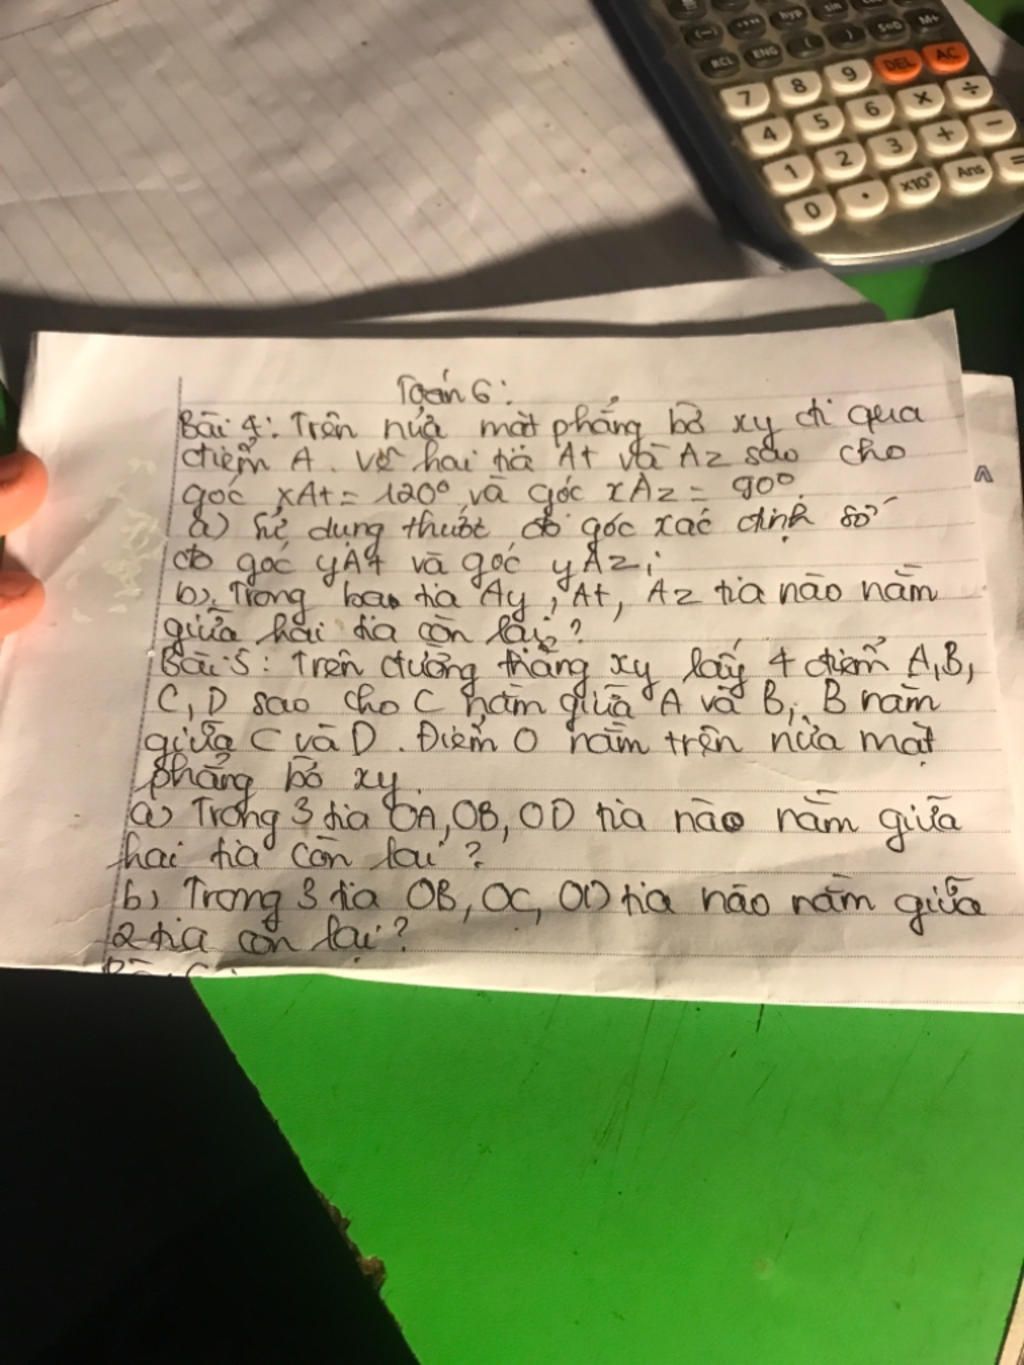 hyp sin
(−) hyp sin
RCL ENG ( ) S⇔D M+
7 8 9 DEL AC
4 5 6 × ÷
1 2 3 + −
0 . ×10ˣ Ans =
Toán 6:
Bài 4: Trên nửa mặt phẳng bờ xy đi qua
điểm A. Vẽ hai tia At và Az sao cho
góc xAt = 120° và góc xAz = 90°.
a) Sử dụng thước đo góc xác định số
đo góc yAt và góc yAz;
b) Trong ba tia Ay, At, Az tia nào nằm
giữa hai tia còn lại?
Bài 5: Trên đường thẳng xy lấy 4 điểm A, B,
C, D sao cho C nằm giữa A và B, B nằm
giữa C và D. Điểm O nằm trên nửa mặt
phẳng bờ xy.
a) Trong 3 tia OA, OB, OD tia nào nằm giữa
hai tia còn lại?
b) Trong 3 tia OB, OC, OD tia nào nằm giữa
2 tia còn lại?